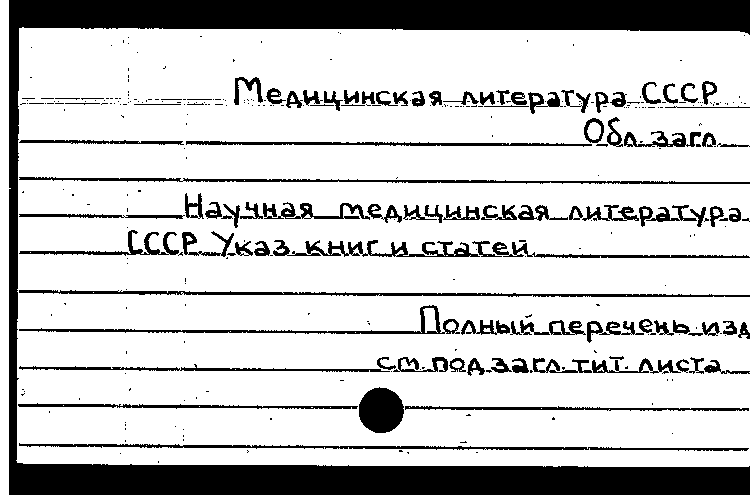 Медицинская литература СССР
Обл. загл.
Научная медицинская литература
СССР. Указ. книг и статей.
Полный перечень изд
см. под загл. тит. листа